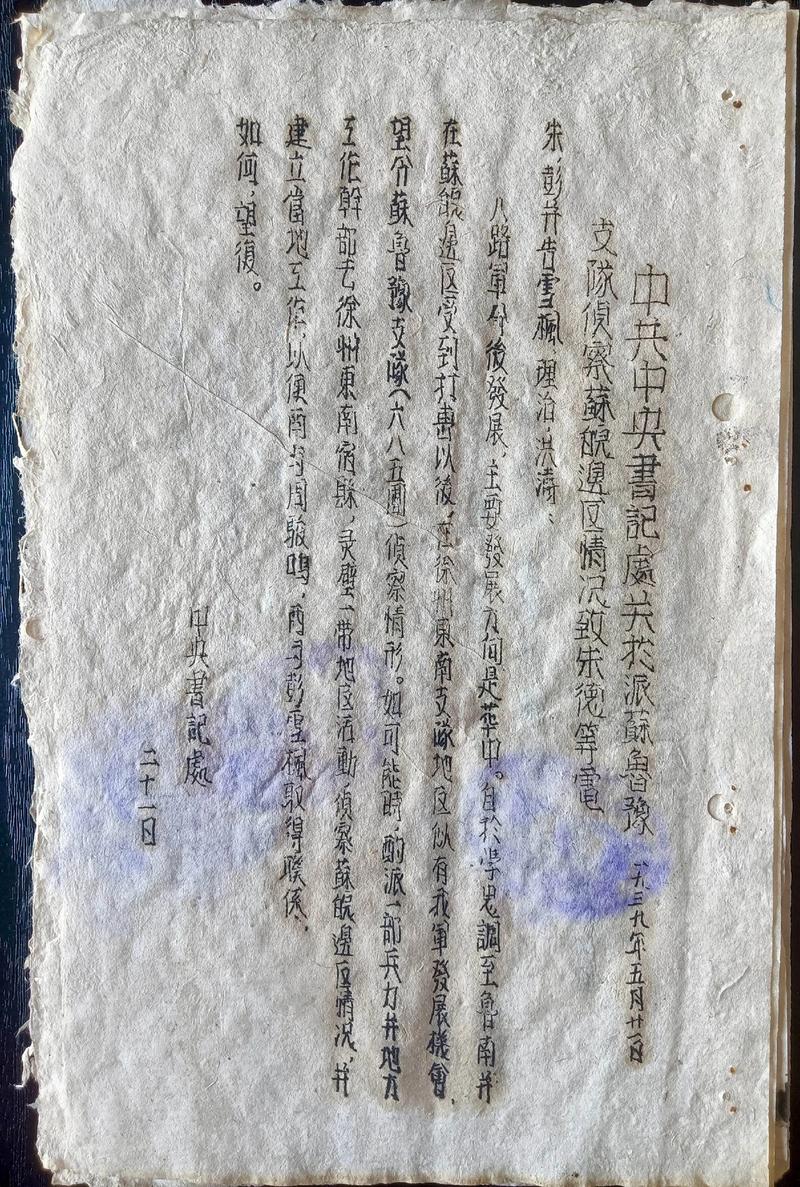 中共中央書記處关於派蘇魯豫
一九三九年五月廿一日
支隊偵察蘇皖邊区情况致朱德等電
朱、彭并告雪楓、理治、洪濤：
八路軍今後發展，主要發展方向是華中。自於学忠調至魯南并
在蘇皖邊区受到打击以後，在徐州東南支隊地区似有我軍發展機會，
望令蘇魯豫支隊（六八五團）偵察情形。如可能時，酌派一部兵力并地方
工作幹部去徐州東南宿縣，灵壁一带地区活動，偵察蘇皖邊区情况，并
建立當地工作，以便西与周駿鳴，西与彭雪楓取得聯係。
如何，望復。
中央書記處
二十一日